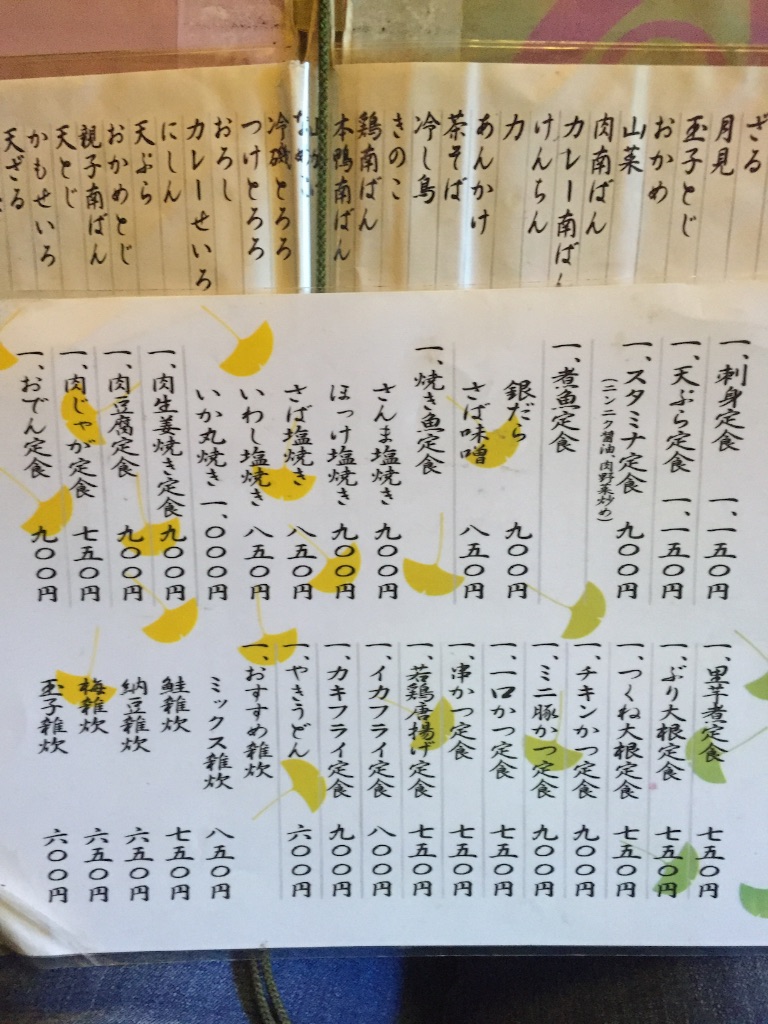 ざる
月見
玉子とじ
おかめ
山菜
肉南ばん
カレー南ばん
けんちん
力
あんかけ
茶そば
冷し鳥
きのこ
鶏南ばん
本鴨南ばん
冷磯とろろ
つけとろろ
おろし
カレーせいろ
にしん
天ぷら
おかめとじ
親子南ばん
天とじ
かもせいろ
天ざる
一、刺身定食 一、一五〇円
一、天ぷら定食 一、一五〇円
一、スタミナ定食 九〇〇円
(ニンニク醤油、肉野菜炒め)
一、煮魚定食
銀だら 九〇〇円
さば味噌 八五〇円
一、焼き魚定食
さんま塩焼き 九〇〇円
ほっけ塩焼き 九〇〇円
さば塩焼き 八五〇円
いわし塩焼き 八五〇円
いか丸焼き 一、〇〇〇円
一、肉生姜焼き定食 九〇〇円
一、肉豆腐定食 九〇〇円
一、肉じゃが定食 七五〇円
一、おでん定食 九〇〇円
一、里芋煮定食 七五〇円
一、ぶり大根定食 七五〇円
一、つくね大根定食 七五〇円
一、チキンかつ定食 九〇〇円
一、ミニ豚かつ定食 九〇〇円
一、一口かつ定食 七五〇円
一、串かつ定食 七五〇円
一、若鶏唐揚げ定食 七五〇円
一、イカフライ定食 八〇〇円
一、カキフライ定食 九〇〇円
一、やきうどん 六〇〇円
一、おすすめ雑炊
ミックス雑炊 八五〇円
鮭雑炊 七五〇円
納豆雑炊 六五〇円
梅雑炊 六五〇円
玉子雑炊 六〇〇円